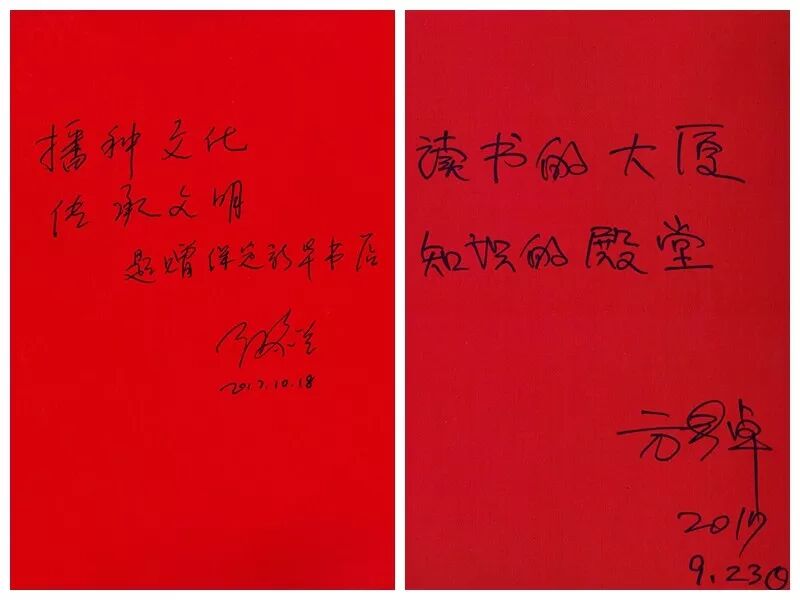 播种文化
传承文明
题赠保定新华书店
2017.10.18
读书的大厦
知识的殿堂
2017
9.23